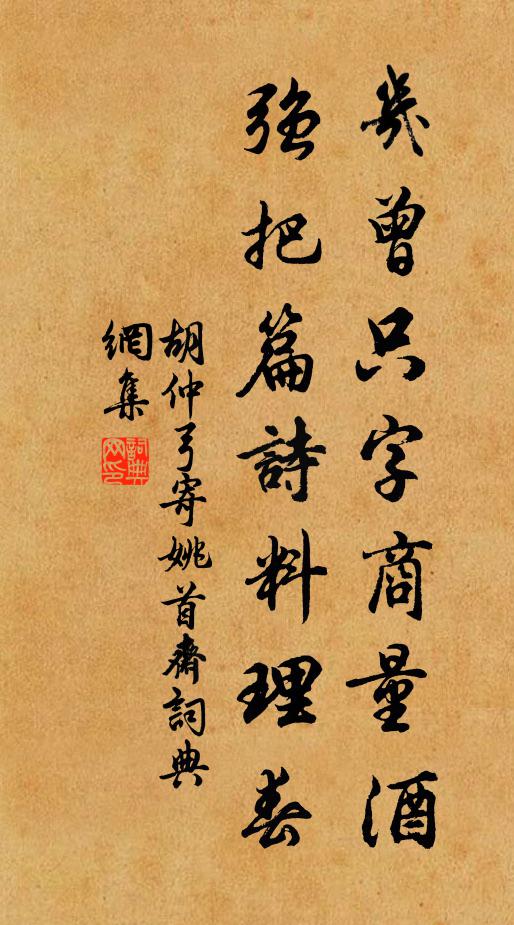 幾曾只字商量酒
強把篇詩料理春
胡仲弓寄姚首齋詞典
網集
詞典網印